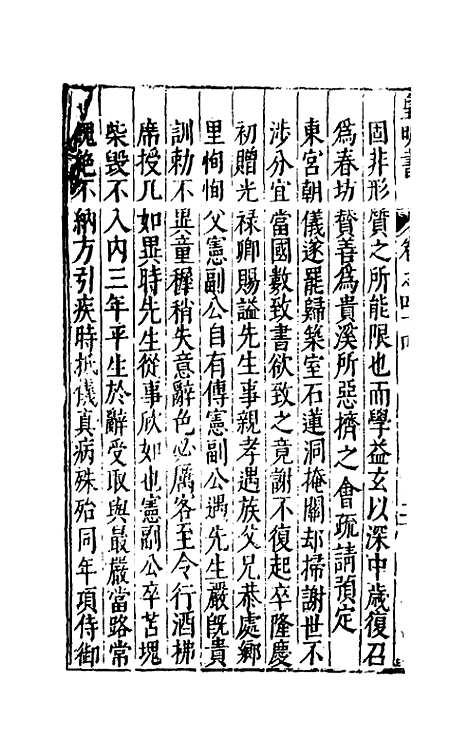 皇明書
固非形質之所能限也而學益玄以深中歲復召
爲春坊贊善爲貴溪所惡擠之會疏請預定
東宮朝儀遂罷歸築室石蓮洞掩關却掃謝世不
涉分宜當國數致書欲致之竟謝不復起卒隆慶
初贈光祿卿賜謚先生事親孝遇族父兄恭處鄉
里恂恂父憲副公自有傳憲副公遇先生嚴旣貴
訓勅不異童穉稍失意辭色必厲客至令行酒拂
席授几如異時先生從事欣如也憲副公卒苫塊
柴毀不入内三年平生於辭受取與最嚴當路常
餽絶不納方引疾時抵儀真病殊殆同年項侍御